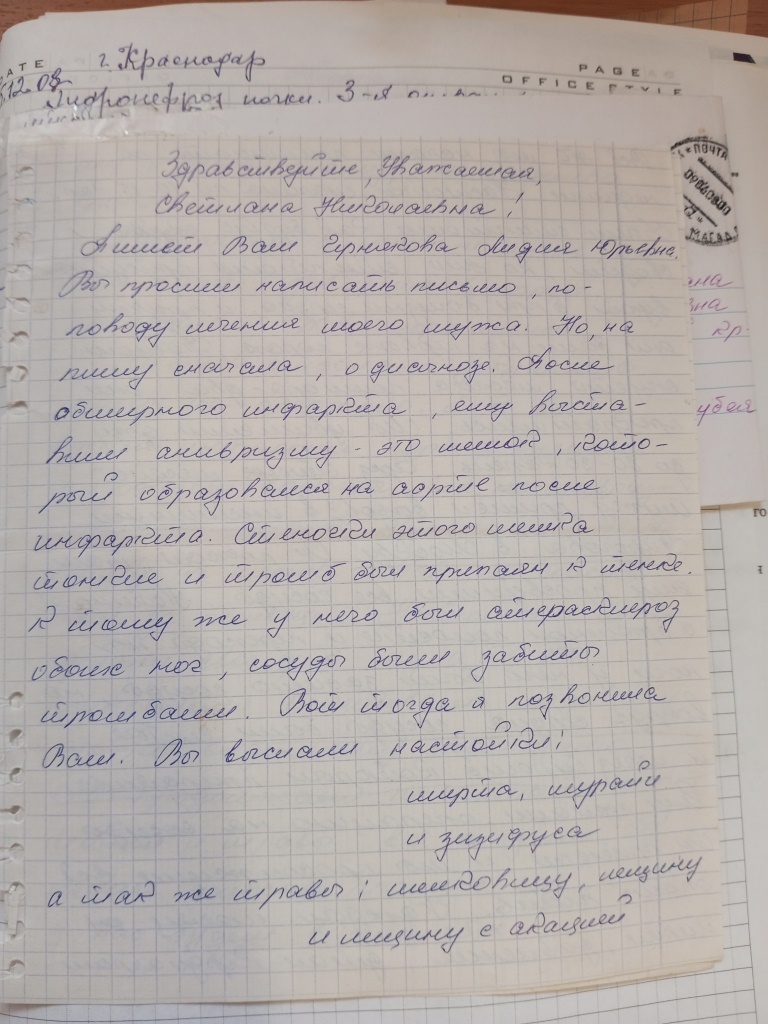 г. Краснодар
PAGE
OFFICE STYLE
12.08
Гидронефроз почки. 3-я
Здравствуйте, Уважаемая,
Светлана Николаевна!
Пишет Вам Лидия Юрьевна.
Вы просили написать письмо, по-
поводу лечения моего мужа. Но, на
пишу сначала, о диагнозе. После
обширного инфаркта, ему выста-
вили аневризму - это мешок, кото-
рый образовался на аорте после
инфаркта. Стеночки этого мешка
тонкие и тромб был припаян к стенке.
К тому же у него был атерасклероз
обоих ног, сосуды были забиты
тромбами. Вот тогда я позвонила
Вам. Вы выслали настойки:
мирта, мурайи
и зизифуса
а так же травы: шелковицу, лещину
и лещину с акацией
ПОЧТА
ана
вна
кр
убея
го